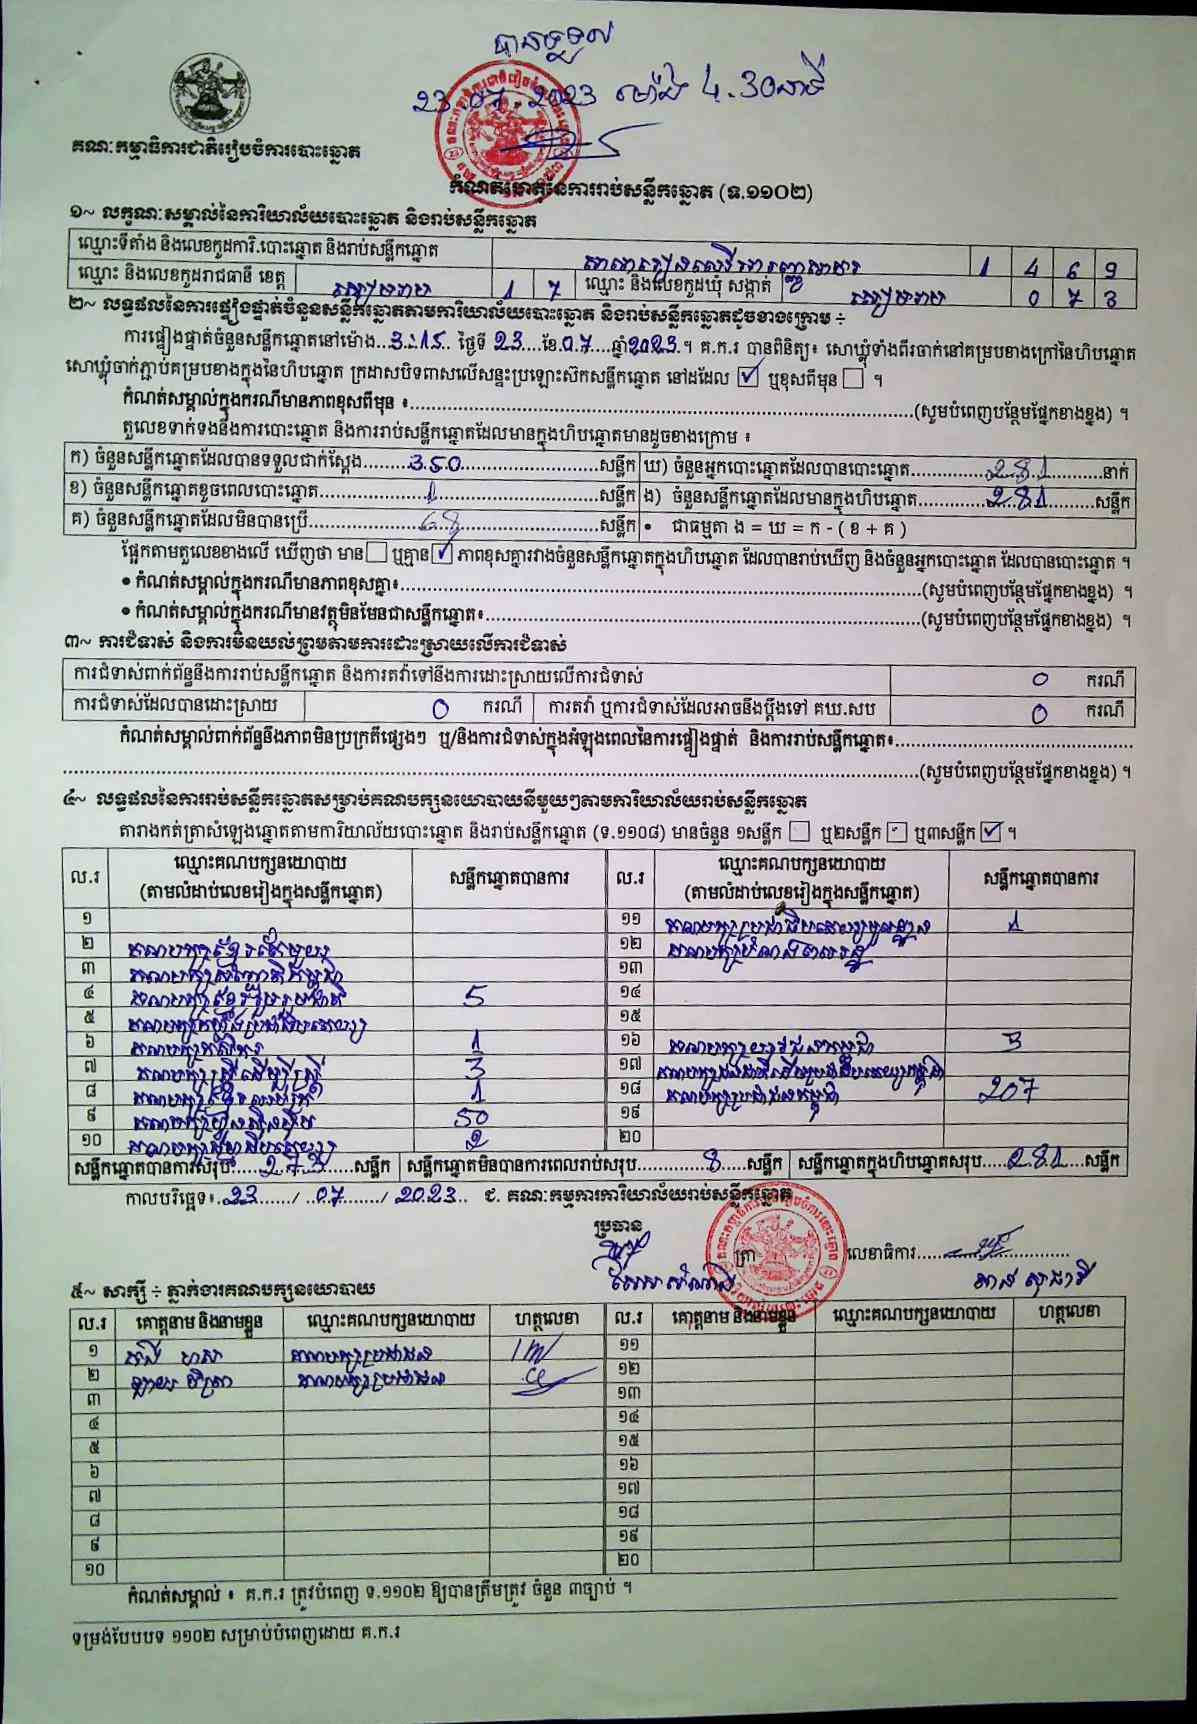 បានទទួល
23.07.2023 ម៉ោង 4.30នាទី
គណៈកម្មាធិការជាតិរៀបចំការបោះឆ្នោត
កំណត់ហេតុនៃការរាប់សន្លឹកឆ្នោត (ទ.១១០២)
១~ លក្ខណៈសម្គាល់នៃការិយាល័យបោះឆ្នោត និងរាប់សន្លឹកឆ្នោត
ឈ្មោះទីតាំង និងលេខកូដការិ.បោះឆ្នោត និងរាប់សន្លឹកឆ្នោត 1 4 6 9
ឈ្មោះ និងលេខកូដរាជធានី ខេត្ត សៀមរាប 1 7 ឈ្មោះ និងលេខកូដឃុំ សង្កាត់ សៀមរាប 0 7 3
២~ លទ្ធផលនៃការផ្ទៀងផ្ទាត់ចំនួនសន្លឹកឆ្នោតតាមការិយាល័យបោះឆ្នោត និងរាប់សន្លឹកឆ្នោតដូចខាងក្រោម ÷
ការផ្ទៀងផ្ទាត់ចំនួនសន្លឹកឆ្នោតនៅម៉ោង...3:15.. ថ្ងៃទី 23....ខែ.07....ឆ្នាំ2023.។ គ.ក.រ បានពិនិត្យ៖ សោឃ្លុំទាំងពីរចាក់នៅគម្របខាងក្រៅនៃហិបឆ្នោត
សោឃ្លុំចាក់ភ្ជាប់គម្របខាងក្នុងនៃហិបឆ្នោត ក្រដាសបិទពាសលើសន្ទះប្រឡោះស៊កសន្លឹកឆ្នោត នៅដដែល ☑ ឬខុសពីមុន ☐ ។
កំណត់សម្គាល់ក្នុងករណីមានភាពខុសពីមុន ៖......(សូមបំពេញបន្ថែមផ្នែកខាងខ្នង) ។
តួលេខទាក់ទងនឹងការបោះឆ្នោត និងការរាប់សន្លឹកឆ្នោតដែលមានក្នុងហិបឆ្នោតមានដូចខាងក្រោម ៖
ក) ចំនួនសន្លឹកឆ្នោតដែលបានទទួលជាក់ស្តែង........350......សន្លឹក ឃ) ចំនួនអ្នកបោះឆ្នោតដែលបានបោះឆ្នោត........281......នាក់
ខ) ចំនួនសន្លឹកឆ្នោតខូចពេលបោះឆ្នោត........1......សន្លឹក ង) ចំនួនសន្លឹកឆ្នោតដែលមានក្នុងហិបឆ្នោត........281......សន្លឹក
គ) ចំនួនសន្លឹកឆ្នោតដែលមិនបានប្រើ........68......សន្លឹក • ជាធម្មតា ង = ឃ = ក - ( ខ + គ )
ផ្អែកតាមតួលេខខាងលើ ឃើញថា មាន ☐ ឬគ្មាន ☑ ភាពខុសគ្នារវាងចំនួនសន្លឹកឆ្នោតក្នុងហិបឆ្នោត ដែលបានរាប់ឃើញ និងចំនួនអ្នកបោះឆ្នោត ដែលបានបោះឆ្នោត ។
• កំណត់សម្គាល់ក្នុងករណីមានភាពខុសគ្នា៖......(សូមបំពេញបន្ថែមផ្នែកខាងខ្នង) ។
• កំណត់សម្គាល់ក្នុងករណីមានវត្ថុមិនមែនជាសន្លឹកឆ្នោត៖......(សូមបំពេញបន្ថែមផ្នែកខាងខ្នង) ។
៣~ ការជំទាស់ និងការមិនយល់ព្រមតាមការដោះស្រាយលើការជំទាស់
ការជំទាស់ពាក់ព័ន្ធនឹងការរាប់សន្លឹកឆ្នោត និងការតវ៉ាទៅនឹងការដោះស្រាយលើការជំទាស់ 0 ករណី
ការជំទាស់ដែលបានដោះស្រាយ 0 ករណី ការតវ៉ា ឬការជំទាស់ដែលអាចនឹងប្តឹងទៅ គឃ.សប 0 ករណី
កំណត់សម្គាល់ពាក់ព័ន្ធនឹងភាពមិនប្រក្រតីផ្សេងៗ ឬ/និងការជំទាស់ក្នុងអំឡុងពេលនៃការផ្ទៀងផ្ទាត់ និងការរាប់សន្លឹកឆ្នោត៖......
......(សូមបំពេញបន្ថែមផ្នែកខាងខ្នង) ។
៤~ លទ្ធផលនៃការរាប់សន្លឹកឆ្នោតសម្រាប់គណបក្សនយោបាយនីមួយៗតាមការិយាល័យរាប់សន្លឹកឆ្នោត
តារាងកត់ត្រាសំឡេងឆ្នោតតាមការិយាល័យបោះឆ្នោត និងរាប់សន្លឹកឆ្នោត (ទ.១១០៨) មានចំនួន ១សន្លឹក ☐ ឬ២សន្លឹក ☐ ឬ៣សន្លឹក ☑ ។
ល.រ ឈ្មោះគណបក្សនយោបាយ (តាមលំដាប់លេខរៀងក្នុងសន្លឹកឆ្នោត) សន្លឹកឆ្នោតបានការ ល.រ ឈ្មោះគណបក្សនយោបាយ (តាមលំដាប់លេខរៀងក្នុងសន្លឹកឆ្នោត) សន្លឹកឆ្នោតបានការ
១ ១១ គណបក្សប្រជាធិបតេយ្យមូលដ្ឋាន 1
២ គណបក្សខ្មែរតែមួយ ១២
៣ ១៣
៤ គណបក្សខ្មែររួបរួមជាតិ 5 ១៤
៥ គណបក្សកម្លាំងប្រជាធិបតេយ្យ ១៥
៦ គណបក្សកសិករ 1 ១៦ គណបក្សយុវជនកម្ពុជា 3
៧ គណបក្សស្ត្រីដើម្បីស្ត្រី 3 ១៧
៨ 1 ១៨ គណបក្សប្រជាជនកម្ពុជា 207
៩ គណបក្សហ៊្វុនស៊ិនប៉ិច 50 ១៩
១០ 2 ២០
សន្លឹកឆ្នោតបានការសរុប:.....273.....សន្លឹក សន្លឹកឆ្នោតមិនបានការពេលរាប់សរុប........8....សន្លឹក សន្លឹកឆ្នោតក្នុងហិបឆ្នោតសរុប.....281....សន្លឹក
កាលបរិច្ឆេទ៖.23....../..07....../ 2023.. ជ. គណៈកម្មការការិយាល័យរាប់សន្លឹកឆ្នោត
ប្រធាន
ត្រា លេខាធិការ......
៥~ សាក្សី ÷ ភ្នាក់ងារគណបក្សនយោបាយ
ល.រ គោត្តនាម និងនាមខ្លួន ឈ្មោះគណបក្សនយោបាយ ហត្ថលេខា ល.រ គោត្តនាម និងនាមខ្លួន ឈ្មោះគណបក្សនយោបាយ ហត្ថលេខា
១ គណបក្សប្រជាជន ១១
២ គណបក្សប្រជាជន ១២
៣ ១៣
៤ ១៤
៥ ១៥
៦ ១៦
៧ ១៧
៨ ១៨
៩ ១៩
១០ ២០
កំណត់សម្គាល់ ៖ គ.ក.រ ត្រូវបំពេញ ទ.១១០២ ឱ្យបានត្រឹមត្រូវ ចំនួន ៣ច្បាប់ ។
ទម្រង់បែបបទ ១១០២ សម្រាប់បំពេញដោយ គ.ក.រ